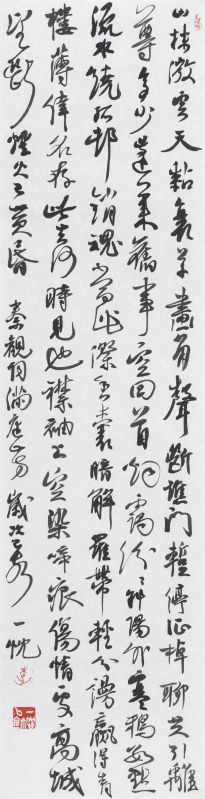 山抹微雲天粘衰草畫角聲斷譙門暫停征棹聊共引離
尊多少蓬萊舊事空回首烟靄紛〻斜陽外寒鴉數點
流水繞孤村銷魂當此際香囊暗解羅帶輕分謾贏得青
樓薄倖名存此去何時見也襟袖上空染啼痕傷情處高城
望斷燈火已黃昏 秦觀詞滿庭芳 歲次 一忱